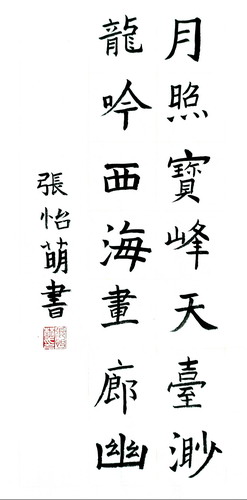 月照寶峰天臺渺
龍吟西海畫廊幽
張怡萌書